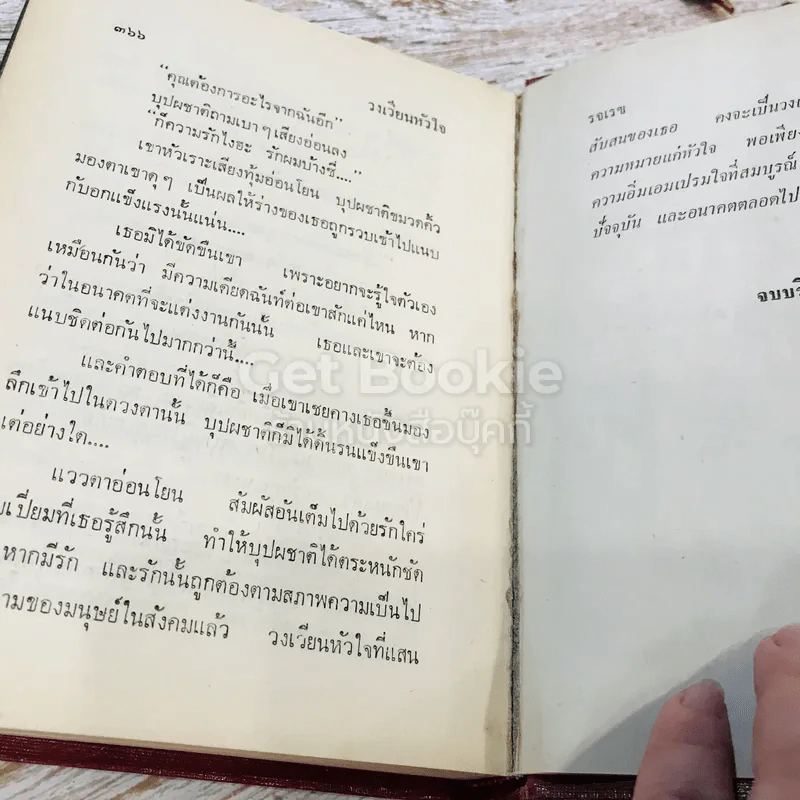 ๓๖๖
วงเวียนหัวใจ
“คุณต้องการอะไรจากฉันอีก”
บุปผชาติถามเบาๆ เสียงอ่อนลง
“ก็ความรักไงฮะ รักผมบ้างซี....”
เขาหัวเราะเสียงทุ้มอ่อนโยน บุปผชาติขมวดคิ้ว
มองตาเขาดุๆ เป็นผลให้ร่างของเธอถูกรวบเข้าไปแนบ
กับอกแข็งแรงนั้นแน่น....
เธอมิได้ขัดขืนเขา เพราะอยากจะรู้ใจตัวเอง
เหมือนกันว่า มีความเดียดฉันท์ต่อเขาสักแค่ไหน หาก
ว่าในอนาคตที่จะแต่งงานกันนั้น เธอและเขาจะต้อง
แนบชิดต่อกันไปมากกว่านี้....
และคำตอบที่ได้ก็คือ เมื่อเขาเชยคางเธอขึ้นมอง
ลึกเข้าไปในดวงตานั้น บุปผชาติก็มิได้ดิ้นรนแข็งขืนเขา
แต่อย่างใด....
แววตาอ่อนโยน สัมผัสอันเต็มไปด้วยรักใคร่
เปี่ยมที่เธอรู้สึกนั้น ทำให้บุปผชาติได้ตระหนักชัด
หากมีรัก และรักนั้นถูกต้องตามสภาพความเป็นไป
ของมนุษย์ในสังคมแล้ว วงเวียนหัวใจที่แสน
รจเรข
สับสนของเธอ คงจะเป็น
ความหมายแก่หัวใจ
ความอิ่มเอมเปรมใจที่สมบูรณ์
ปัจจุบัน และอนาคตตลอดไป
Get Bookie
ร้านหนังสือบุ๊คกี้